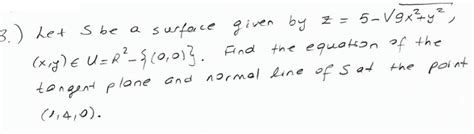 3.) Let S be a surface given by z = 5-√9x²+y²,
(x,y) ∈ U=R²-{(0,0)}. Find the equation of the
tangent plane and normal line of S at the point
(1,4,0).